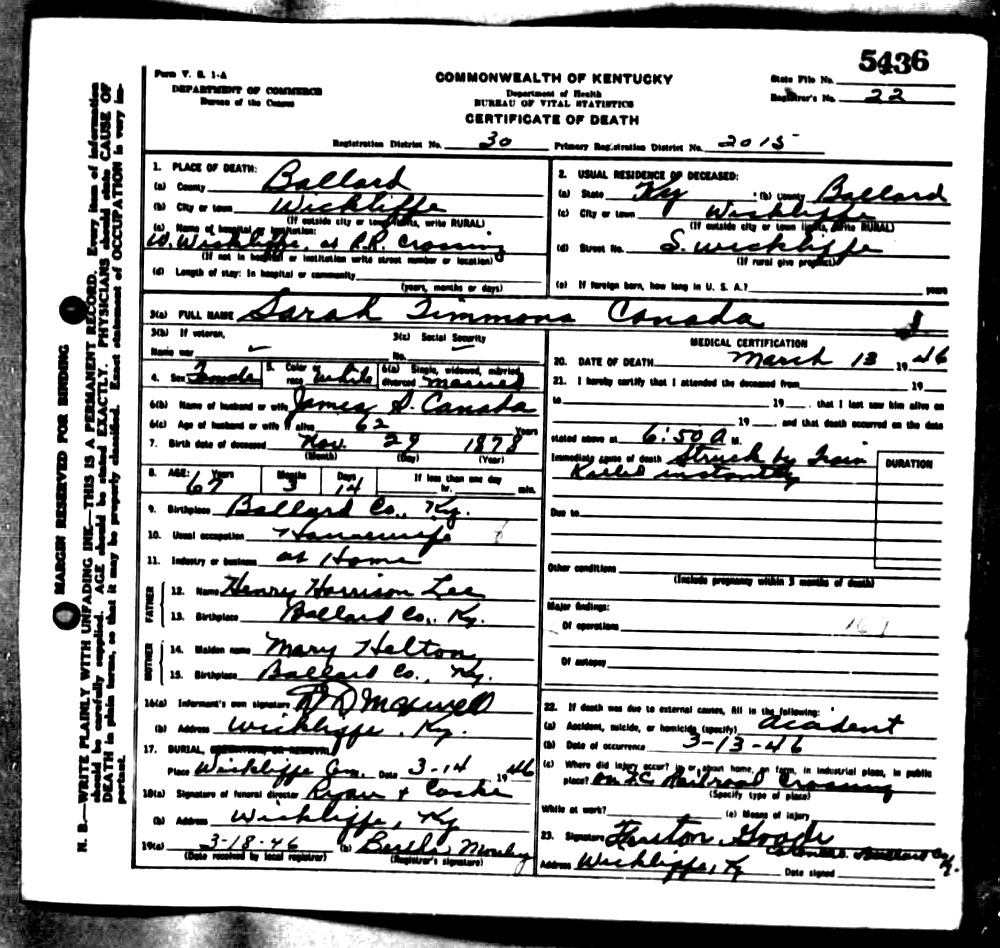 5436
Form V. S. 1-A
DEPARTMENT OF COMMERCE
Bureau of the Census
COMMONWEALTH OF KENTUCKY
Department of Health
BUREAU OF VITAL STATISTICS
CERTIFICATE OF DEATH
State File No.
Registrar's No. 22
Registration District No. 30 Primary Registration District No. 2015
N. B.—WRITE PLAINLY WITH UNFADING INK—THIS IS A PERMANENT RECORD. Every item of information
should be carefully supplied. AGE should be stated EXACTLY. PHYSICIANS should state CAUSE OF
DEATH in plain terms, so that it may be properly classified. Exact statement of OCCUPATION is very im-
portant.
MARGIN RESERVED FOR BINDING
1. PLACE OF DEATH:
(a) County Ballard
(b) City or town Wickliffe
(If outside city or town limits, write RURAL)
(c) Name of hospital or institution:
W. Wickliffe, at R.R. Crossing
(If not in hospital or institution write street number or location)
(d) Length of stay: In hospital or community
(years, months or days)
2. USUAL RESIDENCE OF DECEASED:
(a) State Ky (b) County Ballard
(c) City or town Wickliffe
(If outside city or town limits, write RURAL)
(d) Street No. S. Wickliffe
(If rural give precinct)
(e) If foreign born, how long in U. S. A.? years
3(a) FULL NAME Sarah Timmons Canada
3(b) If veteran,
Name war
3(c) Social Security
No.
4. Sex Female 5. Color or race white 6(a) Single, widowed, married, divorced married
6(b) Name of husband or wife James D. Canada
6(c) Age of husband or wife if alive 62 Years
7. Birth date of deceased Nov 29 1878
(Month) (Day) (Year)
8. AGE: Years 67 Months 3 Days 14 If less than one day hr. min.
9. Birthplace Ballard Co., Ky.
10. Usual occupation Housewife
11. Industry or business at Home
FATHER
12. Name Henry Harrison Lee
13. Birthplace Ballard Co., Ky.
MOTHER
14. Maiden name Mary Helton
15. Birthplace Ballard Co., Ky.
16(a) Informant's own signature D D Maxwell
(b) Address Wickliffe, Ky.
17. BURIAL, CREMATION OR REMOVAL
Place Wickliffe Cem. Date 3-14, 1946
18(a) Signature of funeral director Ryan &
(b) Address Wickliffe, Ky
19(a) 3-18-46 (b) Bertha
(Date received by local registrar) (Registrar's signature)
MEDICAL CERTIFICATION
20. DATE OF DEATH March 13 1946
21. I hereby certify that I attended the deceased from 19
to 19 , that I last saw him alive on
19 , and that death occurred on the date
stated above at 6:50 A M.
Immediate cause of death Struck by Train
Killed instantly
DURATION
Due to
Other conditions
(Include pregnancy within 3 months of death)
Major findings:
Of operations
Of autopsy
22. If death was due to external causes, fill in the following:
(a) Accident, suicide, or homicide (specify) accident
(b) Date of occurrence 3-13-46
(c) Where did injury occur? In or about home, on farm, in industrial place, in public
place? on I.C. Railroad Crossing
(Specify type of place)
While at work? (e) Means of injury
23. Signature Goode
Coroner Ballard Co Ky.
Address Wickliffe, Ky Date signed